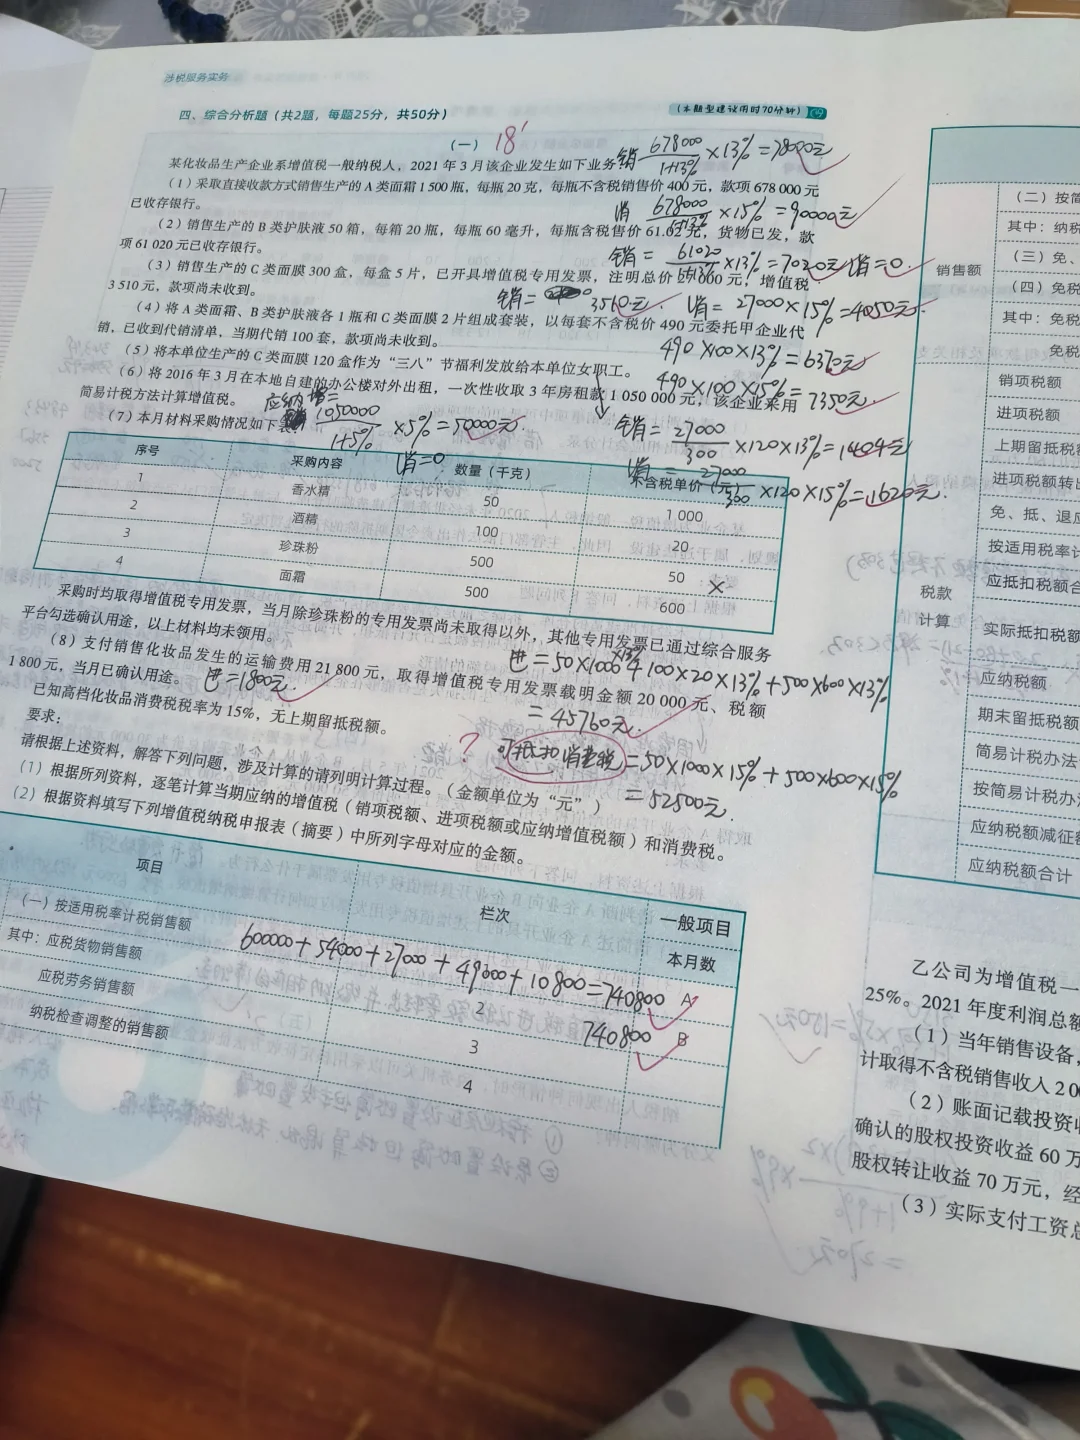 涉税服务实务
四、综合分析题（共2题，每题25分，共50分）
（本题型建议用时70分钟）
（一） 18'
某化妆品生产企业系增值税一般纳税人，2021年3月该企业发生如下业务
销 678000/1+13% ×13%=78000元
（1）采取直接收款方式销售生产的A类面霜1 500瓶，每瓶20克，每瓶不含税销售价400元，款项678 000元
已收存银行。
消 678000/1+13% ×15%=90000元
（2）销售生产的B类护肤液50箱，每箱20瓶，每瓶60毫升，每瓶含税售价61.02元，货物已发，款
项61 020元已收存银行。
销= 61020 ×13%=7020元 消=0.
（3）销售生产的C类面膜300盒，每盒5片，已开具增值税专用发票，注明总价 000元，增值税
3 510元，款项尚未收到。
销= 3510元. 消= 27000×15%=4050元.
（4）将A类面霜、B类护肤液各1瓶和C类面膜2片组成套装，以每套不含税价490元委托甲企业代
销，已收到代销清单，当期代销100套，款项尚未收到。
490×100×13%=6370元
（5）将本单位生产的C类面膜120盒作为“三八”节福利发放给本单位女职工。
490×100×15%=7350元.
（6）将2016年3月在本地自建的办公楼对外出租，一次性收取3年房租款1 050 000元，该企业采用
简易计税方法计算增值税。
应纳增= 1050000/1+5% ×5%=50000元.
消=0
销= 27000/300 ×120×13%=1404元
消= 27000/300 ×120×15%=1620元.
（7）本月材料采购情况如下表：
序号 采购内容 数量（千克） 不含税单价（元）
1 香水精 50 1 000
2 酒精 100 20
3 珍珠粉 500 50 ×
4 面霜 500 600
采购时均取得增值税专用发票，当月除珍珠粉的专用发票尚未取得以外，其他专用发票已通过综合服务
平台勾选确认用途，以上材料均未领用。
进=50×1000×13%+100×20×13%+500×600×13%
=45760元.
（8）支付销售化妆品发生的运输费用21 800元，取得增值税专用发票载明金额20 000元、税额
1 800元，当月已确认用途。 进=1800元.
已知高档化妆品消费税税率为15%，无上期留抵税额。
? 可抵扣消费税=50×1000×15%+500×600×15%
=52500元.
要求：
请根据上述资料，解答下列问题，涉及计算的请列明计算过程。（金额单位为“元”）
（1）根据所列资料，逐笔计算当期应纳的增值税（销项税额、进项税额或应纳增值税额）和消费税。
（2）根据资料填写下列增值税纳税申报表（摘要）中所列字母对应的金额。
项目 栏次 一般项目
本月数
（一）按适用税率计税销售额 600000+54000+27000+49000+10800=740800 A
其中：应税货物销售额 2 740800 B
应税劳务销售额 3
纳税检查调整的销售额 4
销售额
（二）按简
其中：纳税
（三）免、
（四）免税
其中：免税
免税
税款
计算
销项税额
进项税额
上期留抵税
进项税额转出
免、抵、退应
按适用税率计
应抵扣税额合
实际抵扣税额
应纳税额
期末留抵税额
简易计税办法
按简易计税办
应纳税额减征额
应纳税额合计
乙公司为增值税一
25%。2021年度利润总额
（1）当年销售设备，
计取得不含税销售收入2 00
（2）账面记载投资收
确认的股权投资收益60万
股权转让收益70万元，经
（3）实际支付工资总